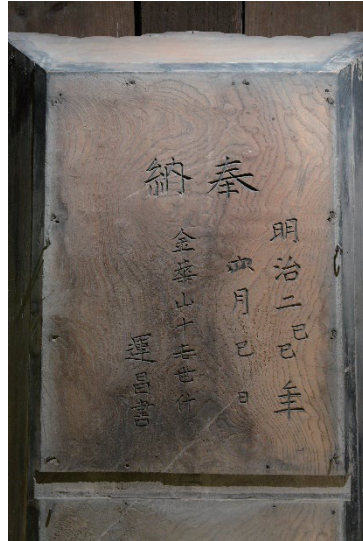 奉納
明治二己巳年
四月巳日
金華山十七世什
運昌書